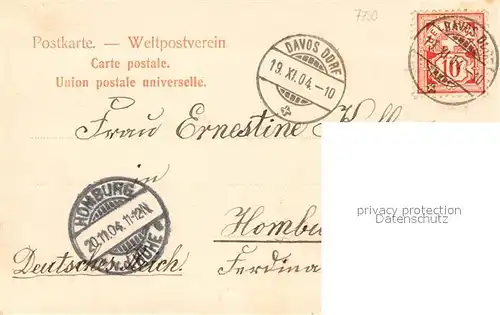 7750
Postkarte. — Weltpostverein
Carte postale.
Union postale universelle.
DAVOS DORF
19. XI. 04. –10
10
Frau Ernestine
in
HOMBURG
20.11.04. 11-12N
HÖHE
Hombu
Deutsches Reich.
Ferdina
privacy protection
watermark